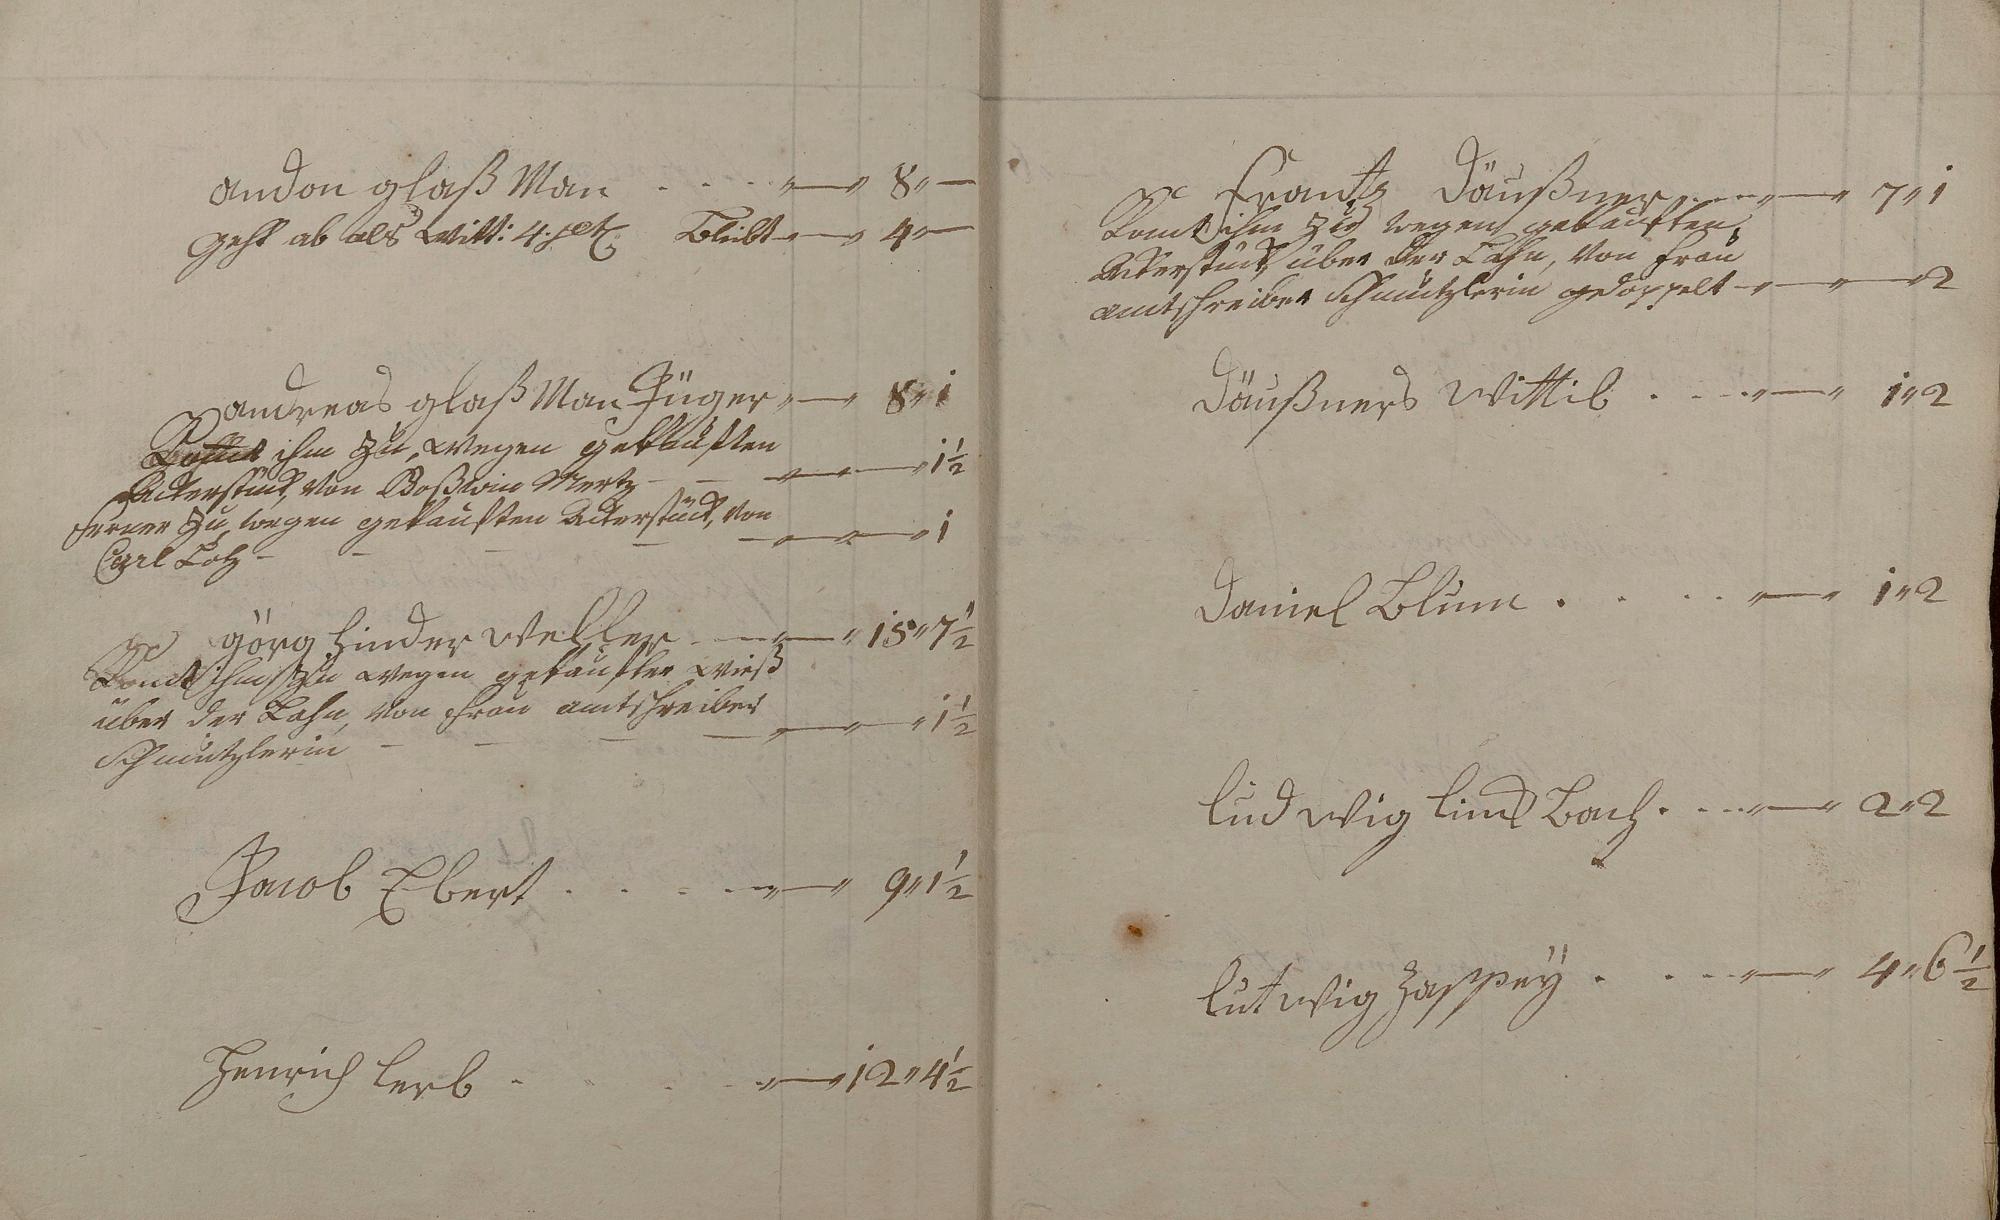 andon glaß Man . . . . „ — „ 8 „ —
geht ab als Witt: 4. Bleibt — „ — „ 4 „ —
andreas glaß Man Jüger „ — „ 8 „ i
Komt ihm zu, wegen gekauften
Ackerstück, von Boßwin Mertz — — „ — „ — „ i ½
ferner zu, wegen gekauften Ackerstück, von
Carl Lotz — — — — — „ — „ — „ i
görg hinder Weller — „ — „ 15 „ 7 ½
Komt ihm zu wegen gekaufter Wieß
über der Lahn, von Frau amtschreiber
Schmützlerin — — — — „ — „ — „ i ½
Jacob Ebert . . . . „ — „ 9 „ 1 ½
Henrich Lerb . . . . „ — „ 12 „ 4 ½
Frantz Däußner . . . „ — „ 7 „ i
Komt ihm zu wegen gekauften
Ackerstück über der Lahn, von Frau
amtschreiber Schmützlerin gedoppelt — „ — „ — „ 2
Däußners Wittib . . . . „ — „ i „ 2
Daniel Blum . . . . „ — „ i „ 2
ludwig lins Bach . . . . „ — „ 2 „ 2
lutwig Happeÿ . . . . „ — „ 4 „ 6 ½